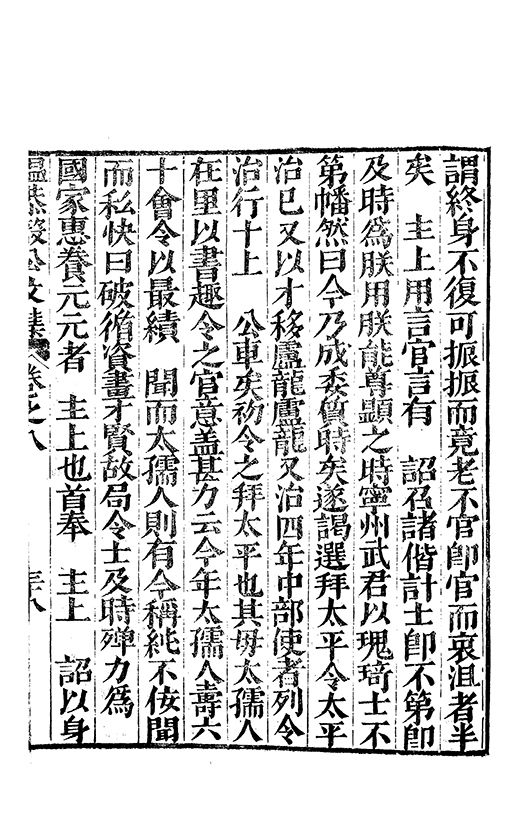 謂終身不復可振振而竟老不官卽官而衰沮者半
矣　主上用言官言有　詔召諸偕計士卽不第卽
及時爲朕用朕能尊顯之時寧州武君以瑰琦士不
第幡然曰今乃成委質時矣遂謁選拜太平令太平
治已又以才移盧龍盧龍又治四年中部使者列令
治行十上　公車矣初令之拜太平也其母太孺人
在里以書趣令之官意盖甚力云今年太孺人壽六
十會令以最績　聞而太孺人則有今稱純不佞聞
而私快曰破循資畫才賢故局令士及時殫力爲
國家惠養元元者　主上也首奉　主上　詔以身
溫恭毅公文集　卷之八　三十八